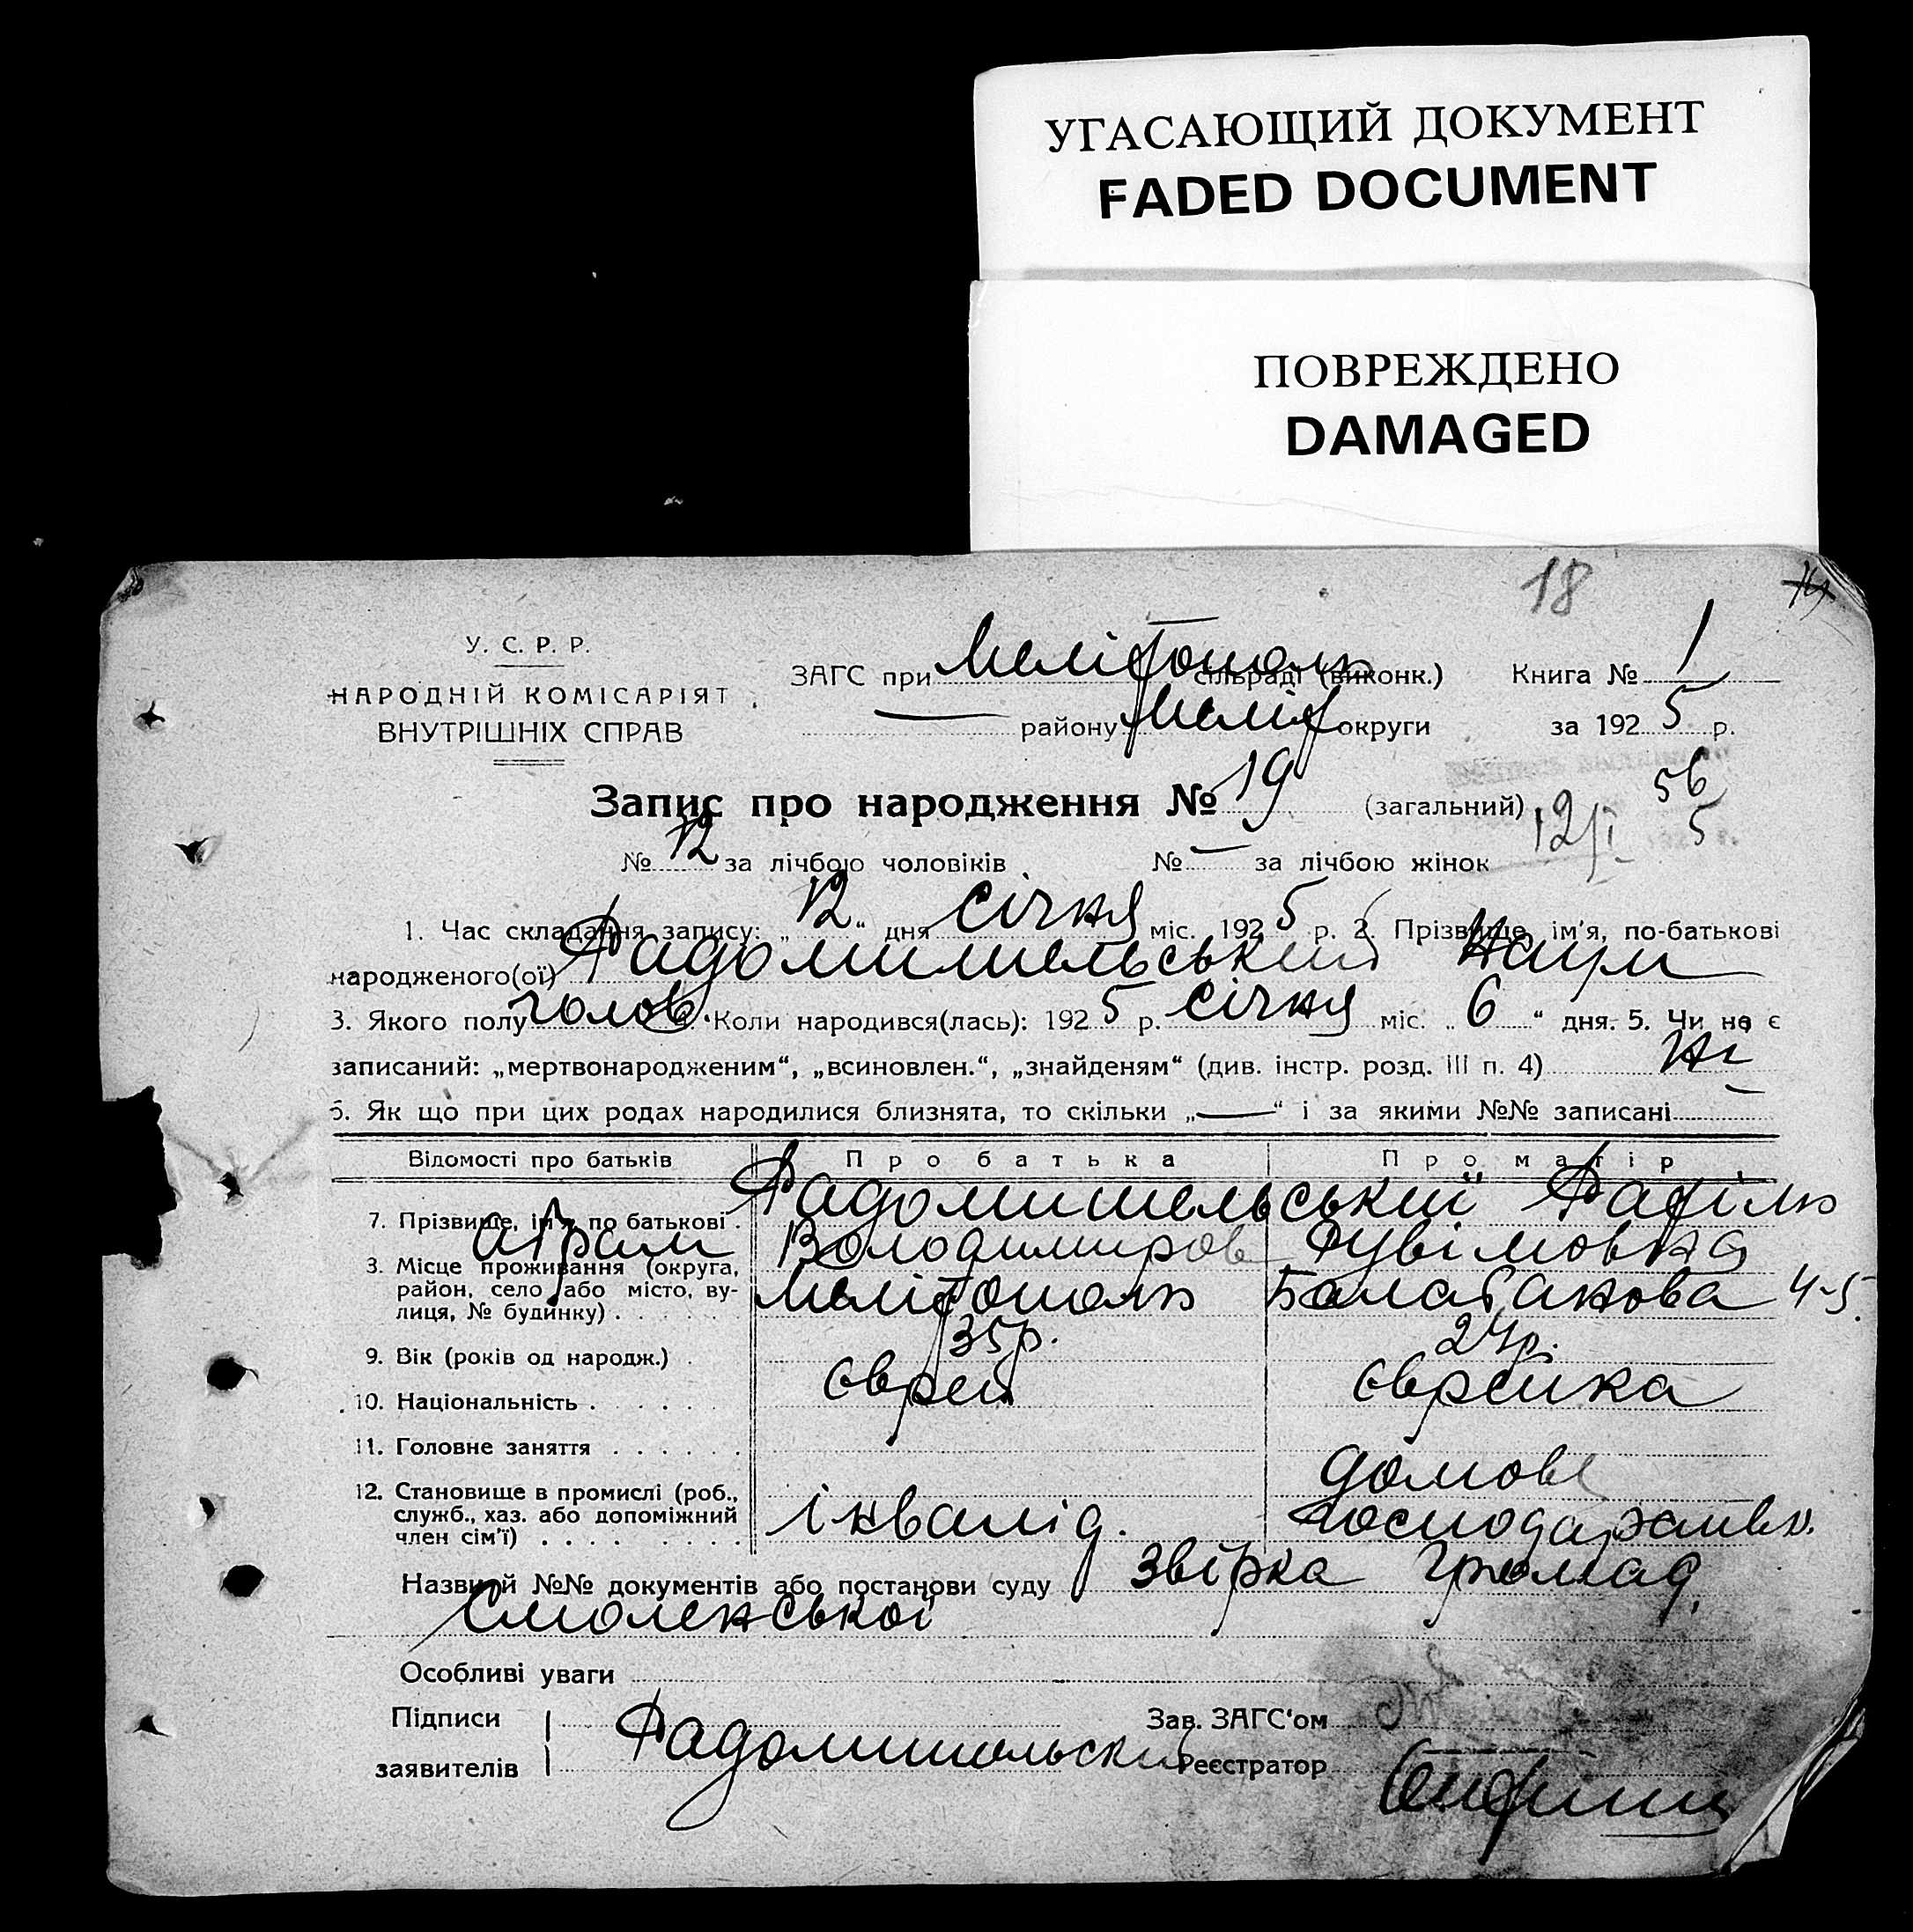 УГАСАЮЩИЙ ДОКУМЕНТ
FADED DOCUMENT
ПОВРЕЖДЕНО
DAMAGED
18
У. С. Р. Р.
НАРОДНІЙ КОМІСАРІЯТ
ВНУТРІШНІХ СПРАВ
ЗАГС при Мелітополь сільраді (виконк.) Книга № 1
— району Меліт округи за 1925 р.
Запис про народження № 19 (загальний) 12/I 56
5
№ 12 за лічбою чоловіків № — за лічбою жінок
1. Час складання запису: „12“ дня січня міс. 1925 р. 2. Прізвище, ім'я, по-батькові
народженого(ої) Радомишельський Наум
3. Якого полу голов. 4. Коли народився(лась): 1925 р. січня міс. „6“ дня. 5. Чи не є
записаний: „мертвонародженим“, „всиновлен.“, „знайденям“ (див. інстр. розд. III п. 4) Ні
6. Як що при цих родах народилися близнята, то скільки „—“ і за якими №№ записані —
Відомості про батьків Про батька Про матір
7. Прізвище, ім'я, по батькові . Радомишельський Рахіль
Абрам Володимиров Рувімовна
3. Місце проживання (округа,
район, село або місто, ву-
лиця, № будинку) . . . . . . Мелітополь Балабанова 4-5.
9. Вік (років од народж.) . 35р. 24р.
10. Національність . . . . . . єврей єврейка
11. Головне заняття . . . . . .
12. Становище в промислі (роб.,
служб., хаз. або допоміжний
член сім'ї) . . . . . . . . інвалід. домове
господарств.
Назви й №№ документів або постанови суду звірка громад.
Смоленської
Особливі уваги
Підписи Зав. ЗАГС'ом
заявителів Радомишельский Реєстратор